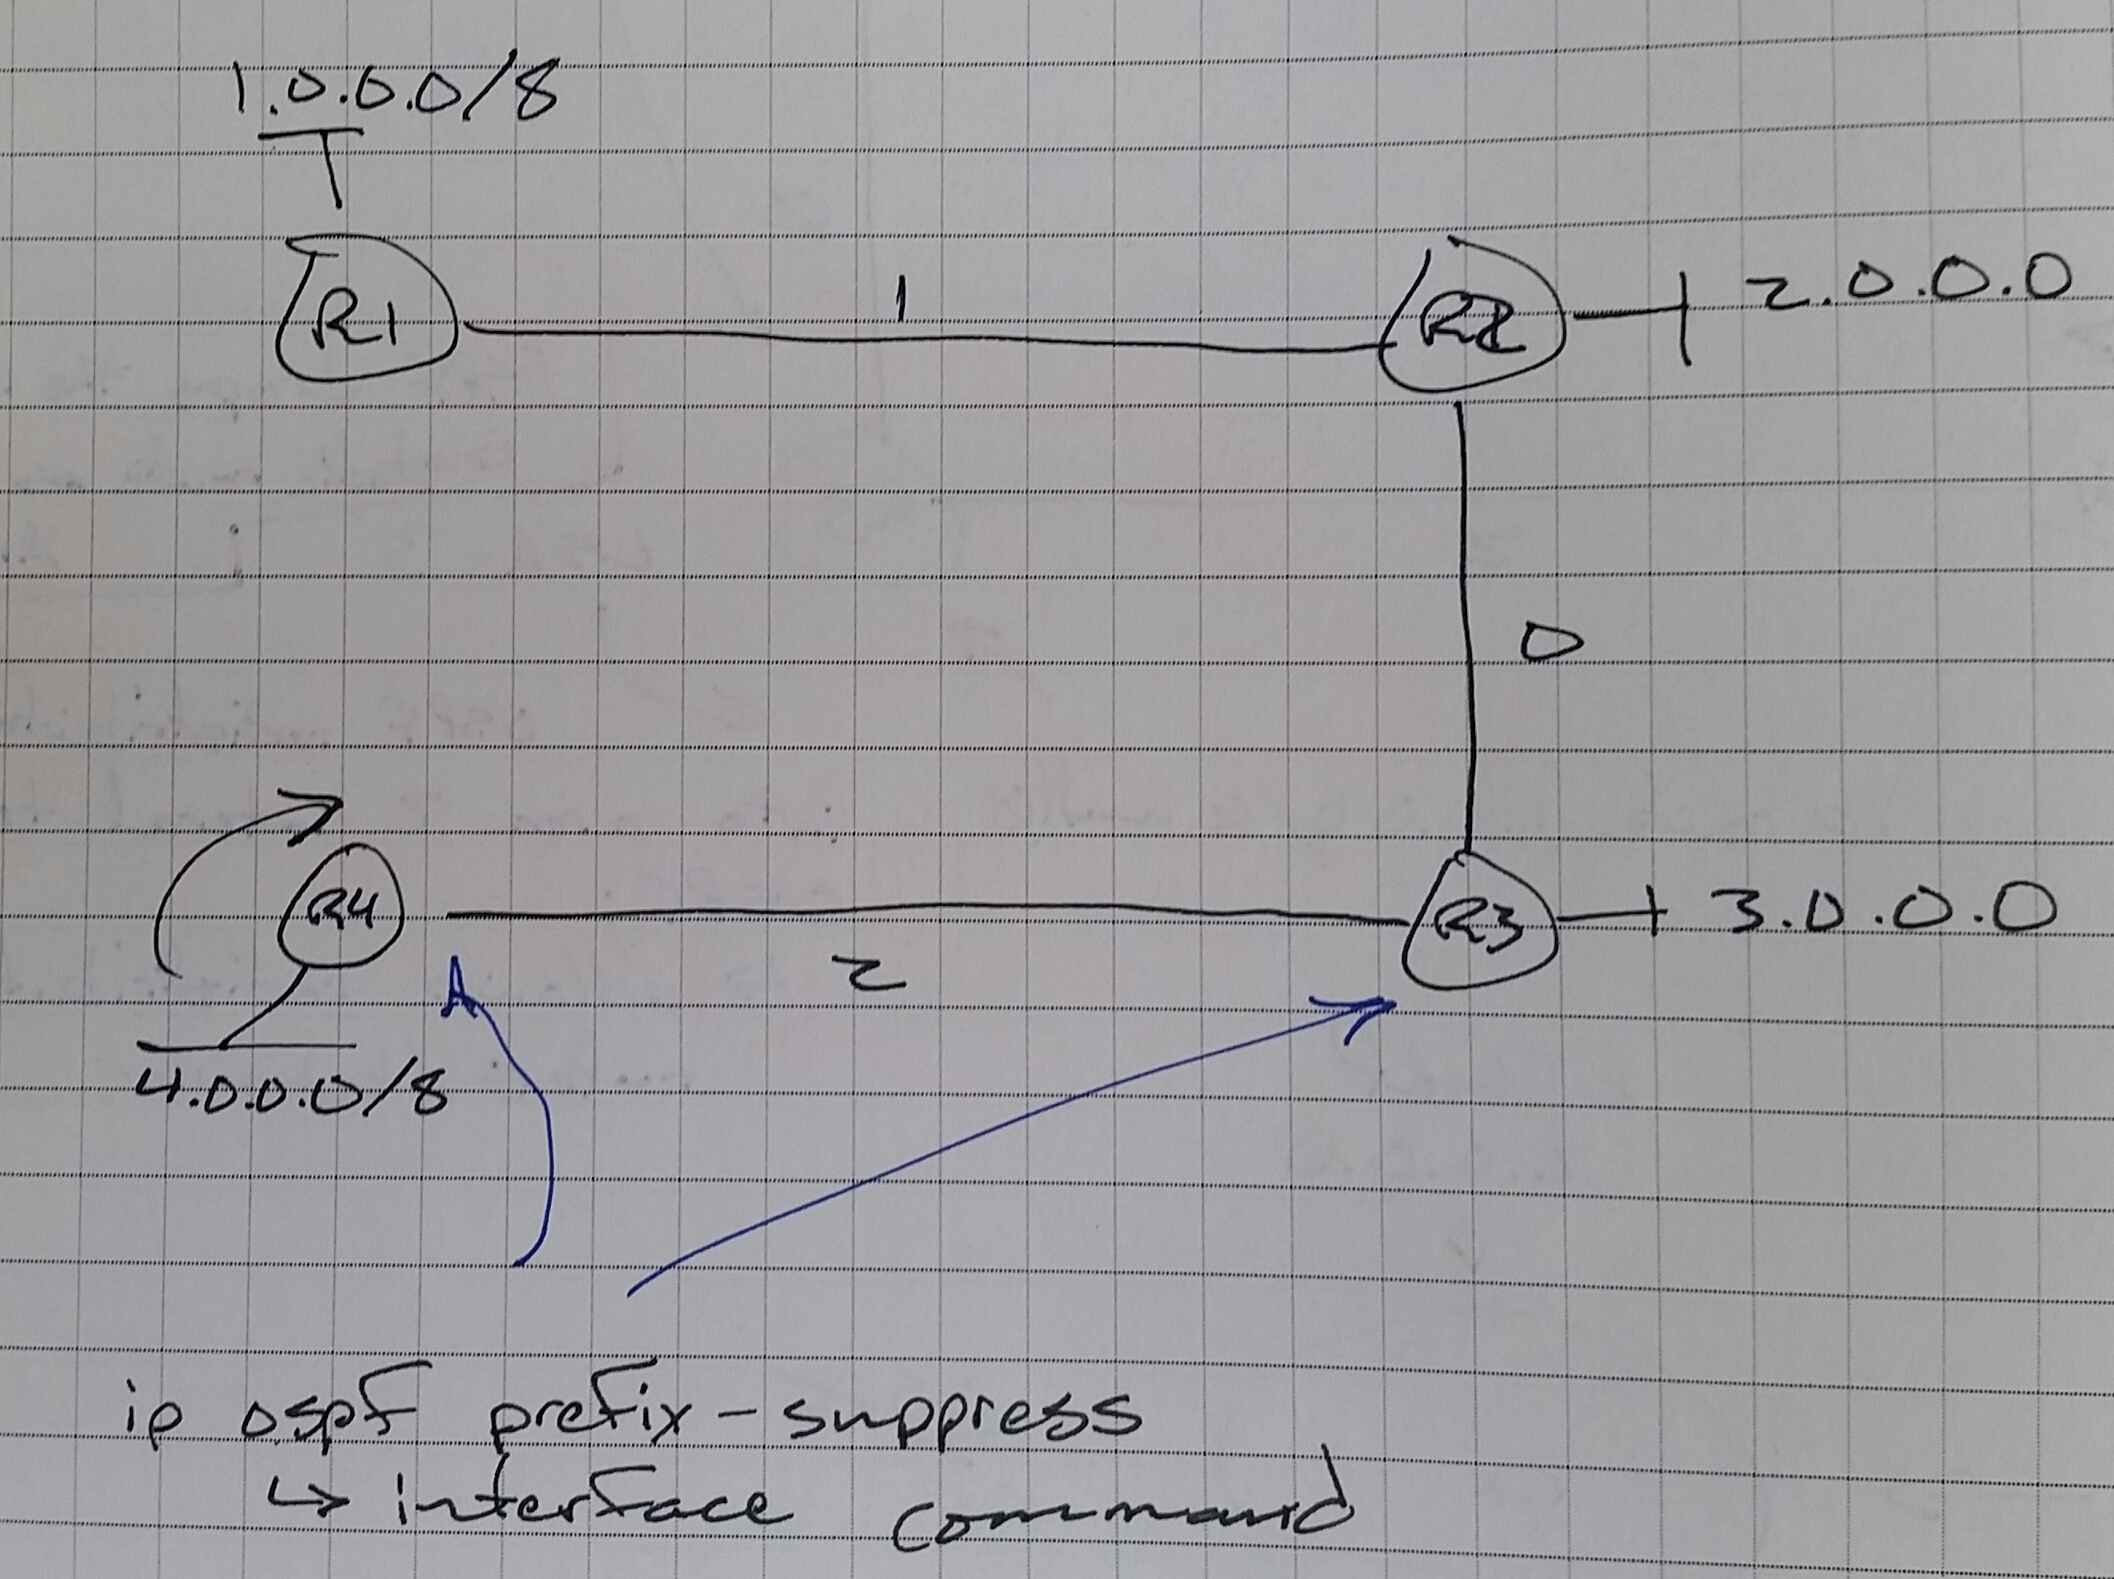 1.0.0.0/8
R1
1
R2
2.0.0.0
0
R4
2
R3
3.0.0.0
4.0.0.0/8
ip ospf prefix-suppress
↳ interface command